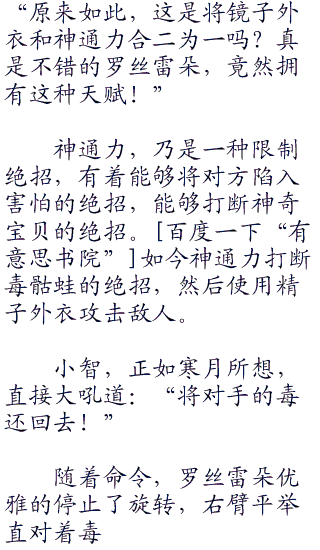 “原来如此，这是将镜子外
衣和神通力合二为一吗？真
是不错的罗丝雷朵，竟然拥
有这种天赋！”
神通力，乃是一种限制
绝招，有着能够将对方陷入
害怕的绝招，能够打断神奇
宝贝的绝招。[百度一下“有
意思书院”]如今神通力打断
毒骷蛙的绝招，然后使用精
子外衣攻击敌人。
小智，正如寒月所想，
直接大吼道：“将对手的毒
还回去！”
随着命令，罗丝雷朵优
雅的停止了旋转，右臂平举
直对着毒